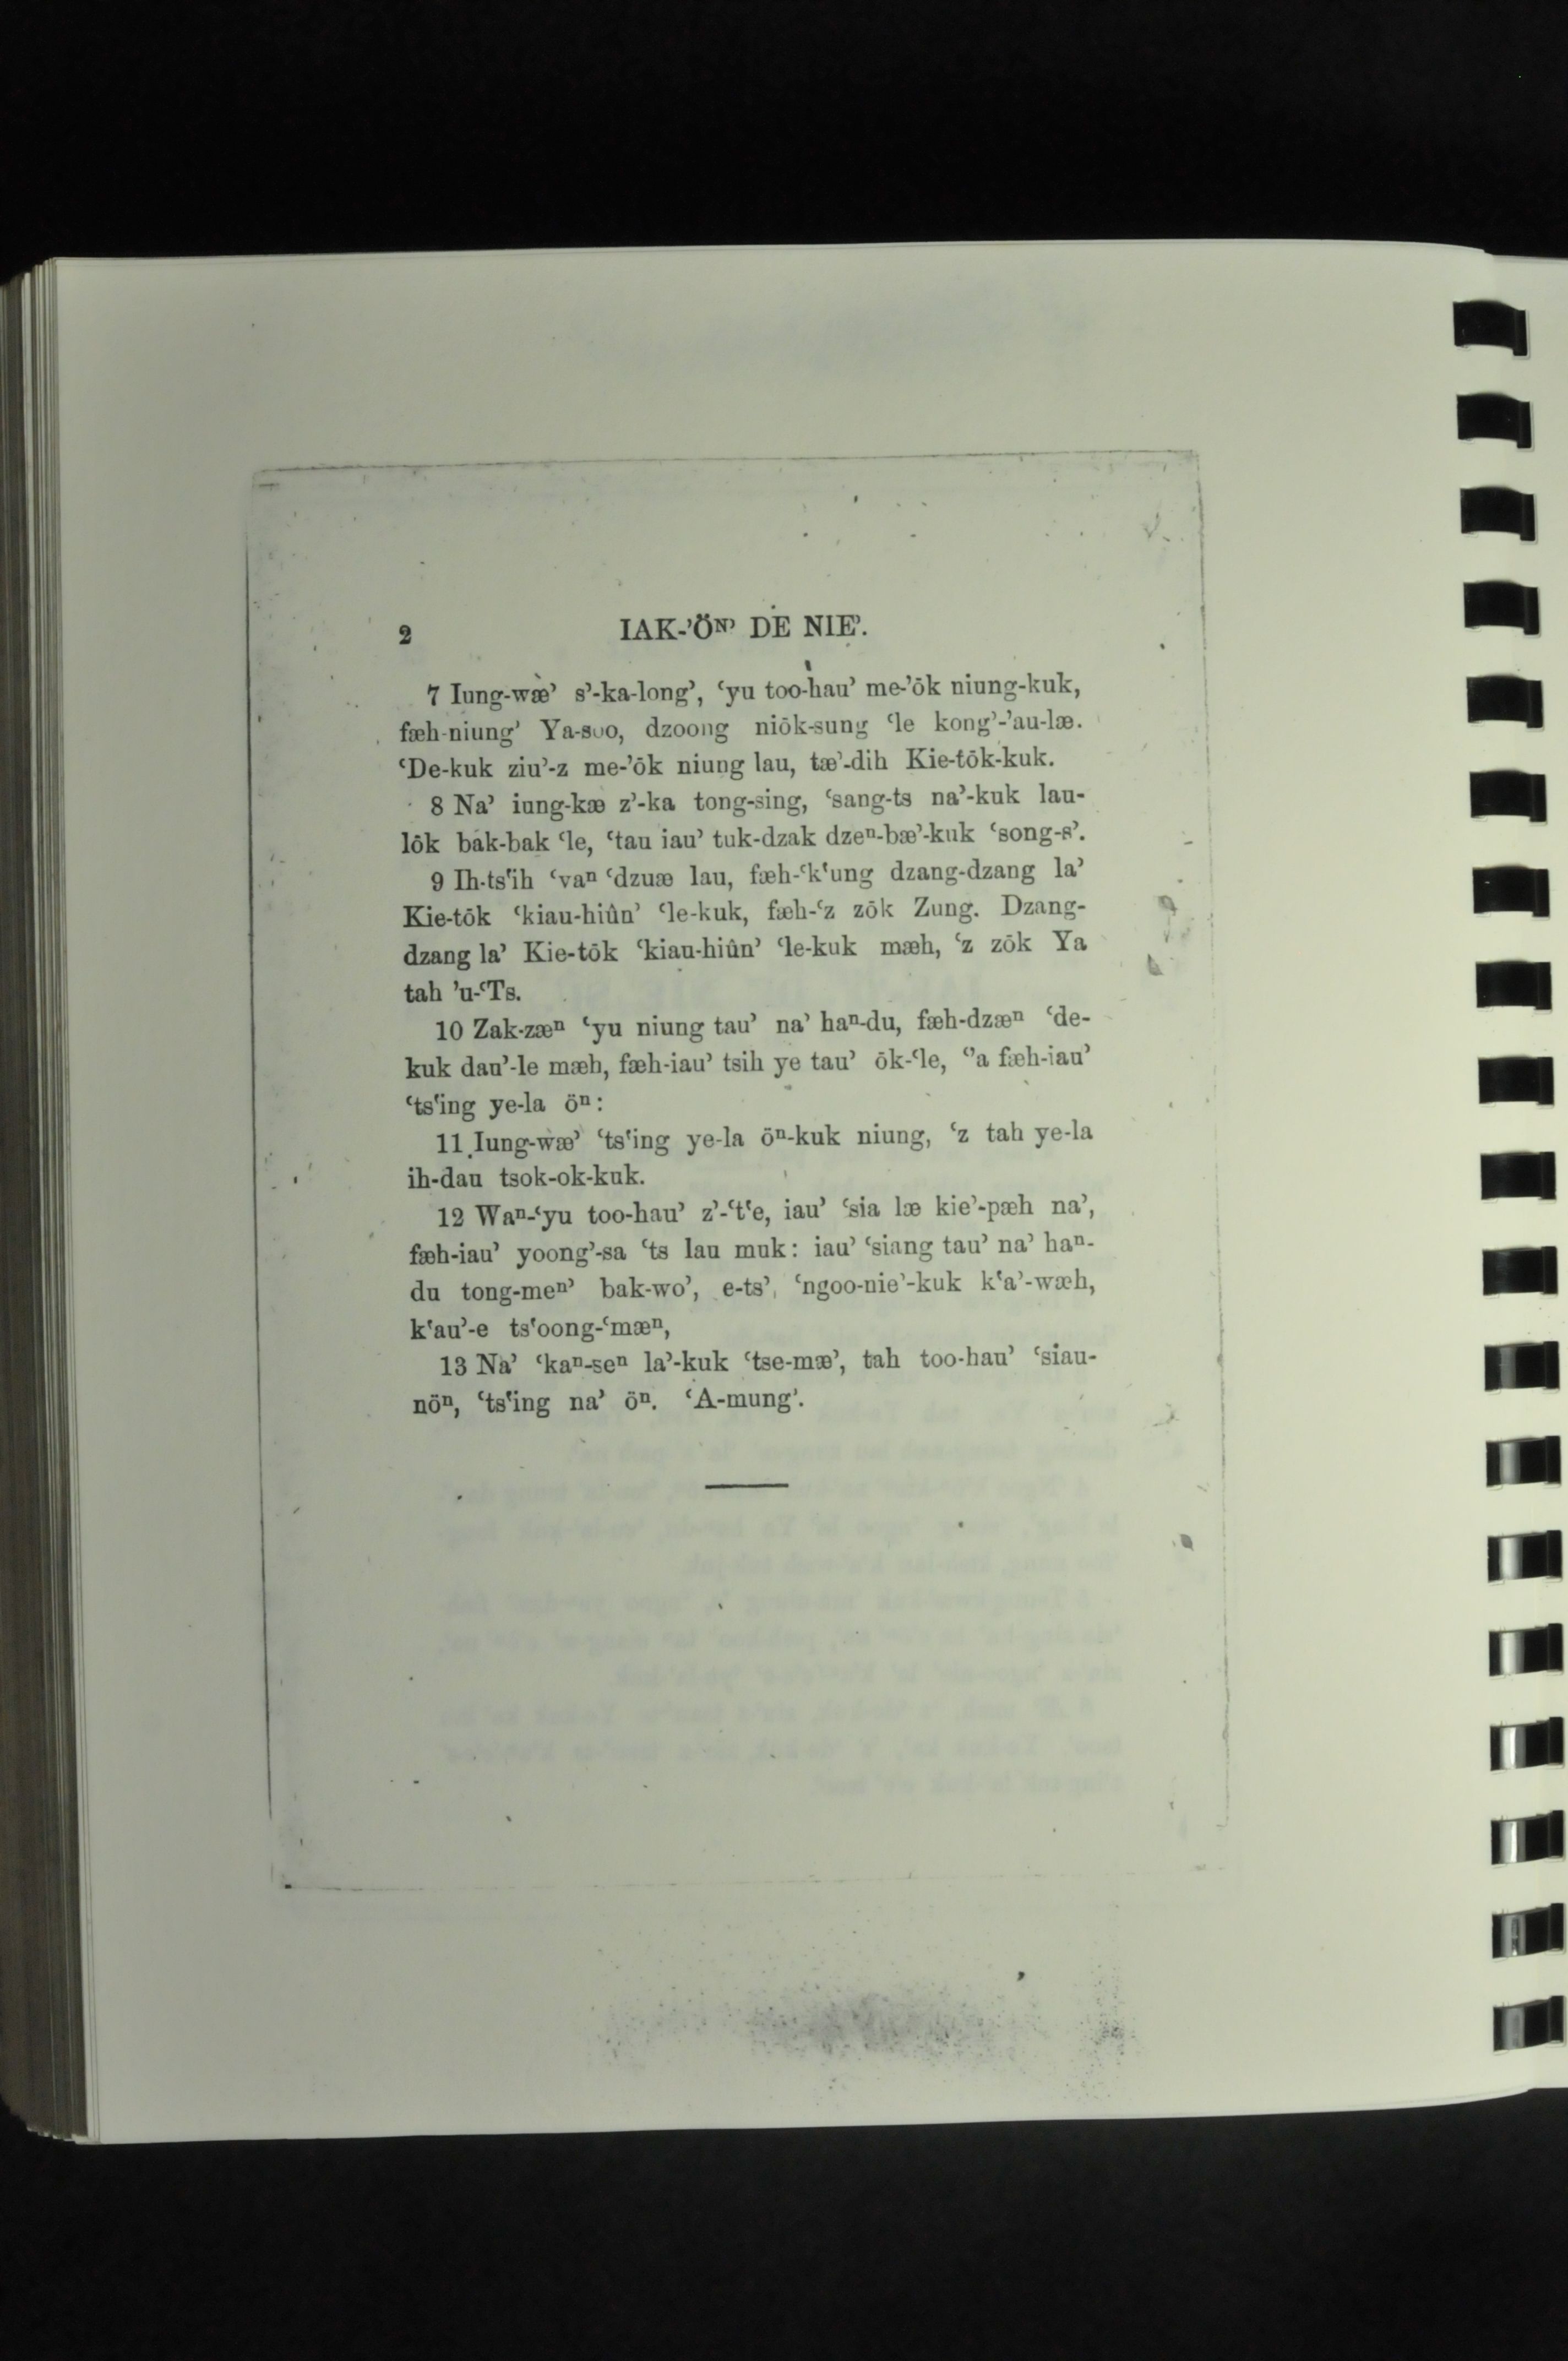 2 IAK-’Öᴺ’ DE NIE’.
7 Iung-wæ’ s’-ka-long’, ‘yu too-hau’ me-’ōk niung-kuk,
fæh-niung’ Ya-soo, dzoong niōk-sung ‘le kong’-’au-læ.
‘De-kuk ziu’-z me-’ōk niung lau, tæ’-dih Kie-tōk-kuk.
8 Na’ iung-kæ z’-ka tong-sing, ‘sang-ts na’-kuk lau-
lōk bak-bak ‘le, ‘tau iau’ tuk-dzak dzeⁿ-bæ’-kuk ‘song-s’.
9 Ih-ts‘ih ‘vaⁿ ‘dzuæ lau, fæh-‘k‘ung dzang-dzang la’
Kie-tōk ‘kiau-hiûn’ ‘le-kuk, fæh-‘z zōk Zung. Dzang-
dzang la’ Kie-tōk ‘kiau-hiûn’ ‘le-kuk mæh, ‘z zōk Ya
tah ’u-‘Ts.
10 Zak-zæⁿ ‘yu niung tau’ na’ haⁿ-du, fæh-dzæⁿ ‘de-
kuk dau’-le mæh, fæh-iau’ tsih ye tau’ ōk-‘le, ‘’a fæh-iau’
‘ts‘ing ye-la öⁿ:
11 Iung-wæ’ ‘ts‘ing ye-la öⁿ-kuk niung, ‘z tah ye-la
ih-dau tsok-ok-kuk.
12 Waⁿ-‘yu too-hau’ z’-‘t‘e, iau’ ‘sia læ kie’-pæh na’,
fæh-iau’ yoong’-sa ‘ts lau muk: iau’ ‘siang tau’ na’ haⁿ-
du tong-meⁿ’ bak-wo’, e-ts’, ‘ngoo-nie’-kuk k‘a’-wæh,
k‘au’-e ts‘oong-‘mæⁿ,
13 Na’ ‘kaⁿ-seⁿ la’-kuk ‘tse-mæ’, tah too-hau’ ‘siau-
nöⁿ, ‘ts‘ing na’ öⁿ. ‘A-mung’.